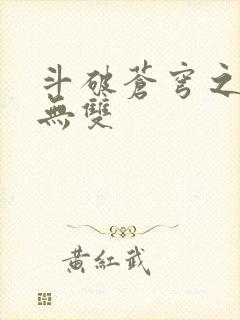 斗破蒼穹之
無雙
黃紅武